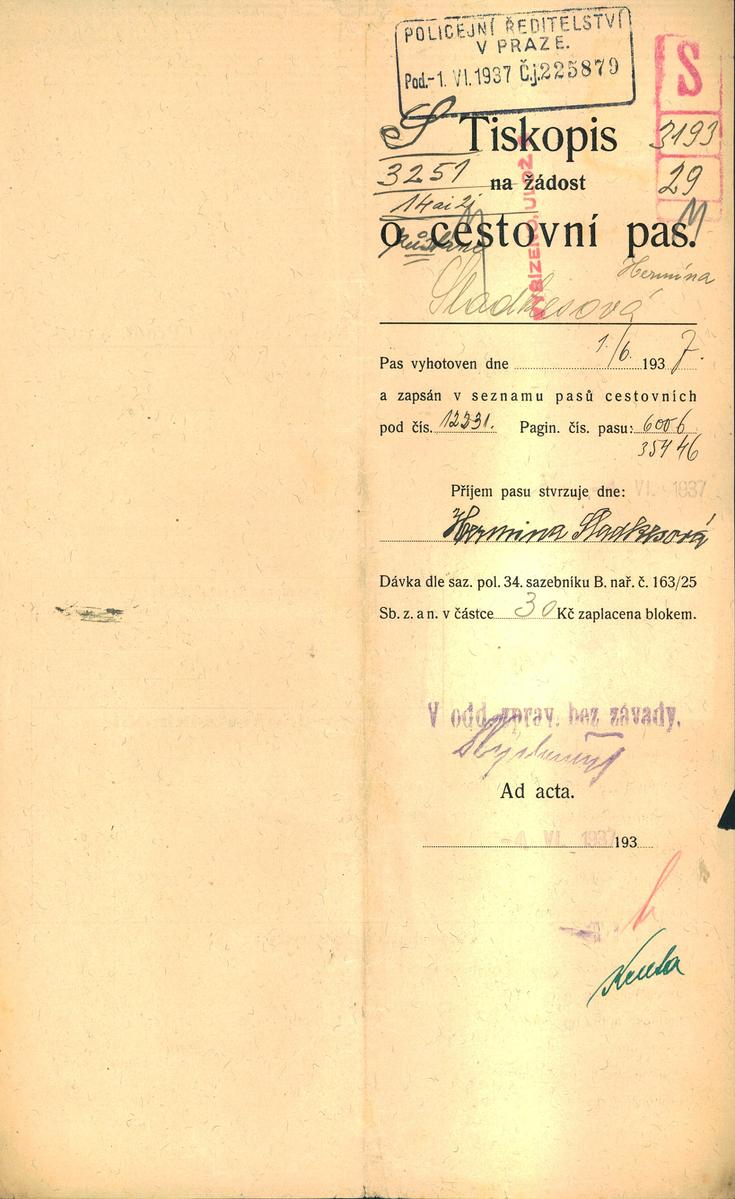 POLICEJNÍ ŘEDITELSTVÍ
V PRAZE.
Pod. -1. VI. 1937 Č.j. 225879
S
S Tiskopis 3193
3251 na žádost 29
o cestovní pas. M
Hermína
Sladkesová
Pas vyhotoven dne 1./6. 1937.
a zapsán v seznamu pasů cestovních
pod čís. 12231. Pagin. čís. pasu: 6006
35446
VI. 1937
Příjem pasu stvrzuje dne:
Hermina Sladkesová
Dávka dle saz. pol. 34. sazebníku B. nař. č. 163/25
Sb. z. a n. v částce 30 Kč zaplacena blokem.
V odd. zprav. bez závady.
Ad acta.
-4. VI. 1937 193